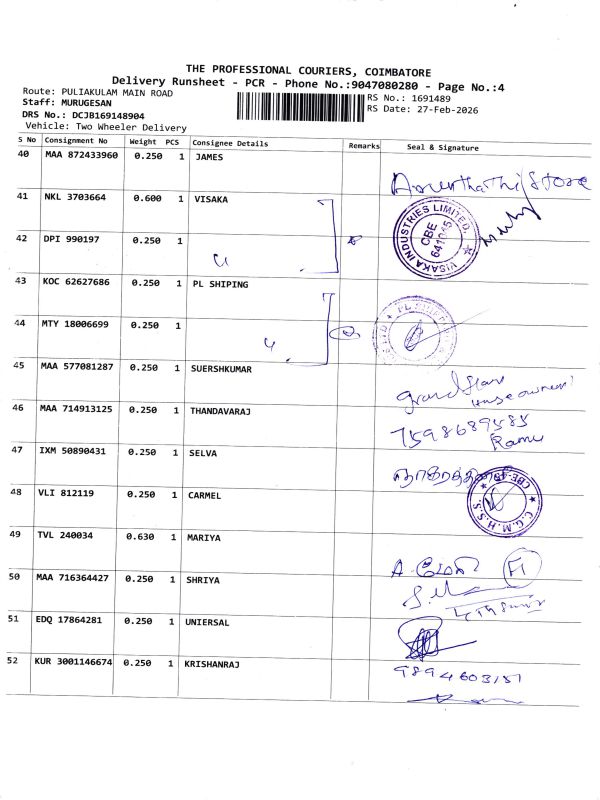 THE PROFESSIONAL COURIERS, COIMBATORE
Delivery Runsheet - PCR - Phone No.:9047080280 - Page No.:4
Route: PULIAKULAM MAIN ROAD
RS No.: 1691489
Staff: MURUGESAN
RS Date: 27-Feb-2026
DRS No.: DCJB169148904
Vehicle: Two Wheeler Delivery
S No Consignment No Weight PCS Consignee Details Remarks Seal & Signature
40 MAA 872433960 0.250 1 JAMES
41 NKL 3703664 0.600 1 VISAKA
VISAKA INDUSTRIES LIMITED. CBE 641045
42 DPI 990197 0.250 1
43 KOC 62627686 0.250 1 PL SHIPING
44 MTY 18006699 0.250 1
45 MAA 577081287 0.250 1 SUERSHKUMAR
House owner
46 MAA 714913125 0.250 1 THANDAVARAJ
7598689585
Ramu
47 IXM 50890431 0.250 1 SELVA
48 VLI 812119 0.250 1 CARMEL
C.G.M.H.S.S.
49 TVL 240034 0.630 1 MARIYA
50 MAA 716364427 0.250 1 SHRIYA
51 EDQ 17864281 0.250 1 UNIERSAL
52 KUR 3001146674 0.250 1 KRISHANRAJ
9894603151